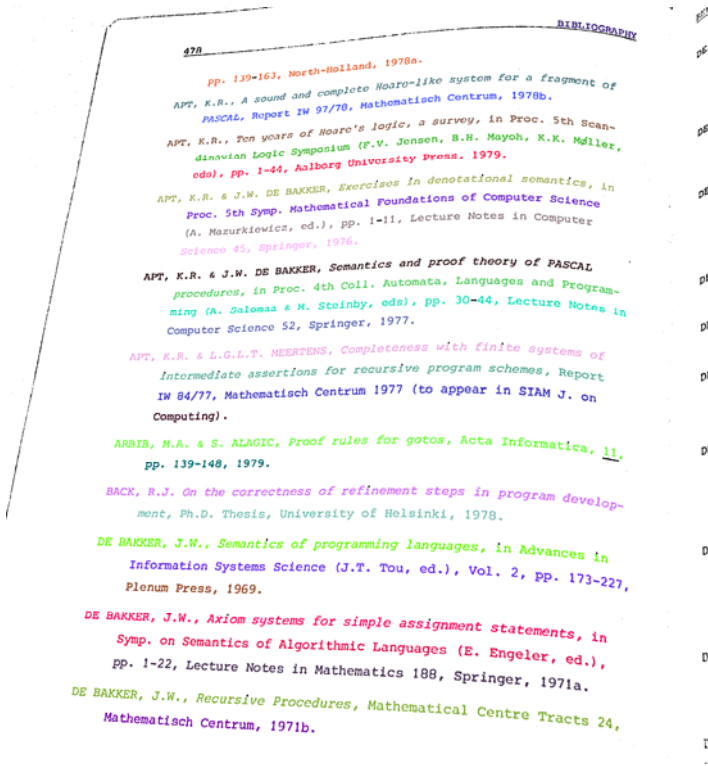 BIBLIOGRAPHY
478
pp. 139-163, North-Holland, 1978a.
APT, K.R., A sound and complete Hoare-like system for a fragment of
PASCAL, Report IW 97/78, Mathematisch Centrum, 1978b.
APT, K.R., Ten years of Hoare's logic, a survey, in Proc. 5th Scan-
dinavian Logic Symposium (F.V. Jensen, B.H. Mayoh, K.K. Møller,
eds), pp. 1-44, Aalborg University Press. 1979.
APT, K.R. & J.W. DE BAKKER, Exercises in denotational semantics, in
Proc. 5th Symp. Mathematical Foundations of Computer Science
(A. Mazurkiewicz, ed.), pp. 1-11, Lecture Notes in Computer
Science 45, Springer, 1976.
APT, K.R. & J.W. DE BAKKER, Semantics and proof theory of PASCAL
procedures, in Proc. 4th Coll. Automata, Languages and Program-
ming (A. Salomaa & M. Steinby, eds), pp. 30-44, Lecture Notes in
Computer Science 52, Springer, 1977.
APT, K.R. & L.G.L.T. MEERTENS, Completeness with finite systems of
intermediate assertions for recursive program schemes, Report
IW 84/77, Mathematisch Centrum 1977 (to appear in SIAM J. on
Computing).
ARBIB, M.A. & S. ALAGIC, Proof rules for gotos, Acta Informatica, 11,
pp. 139-148, 1979.
BACK, R.J. On the correctness of refinement steps in program develop-
ment, Ph.D. Thesis, University of Helsinki, 1978.
DE BAKKER, J.W., Semantics of programming languages, in Advances in
Information Systems Science (J.T. Tou, ed.), Vol. 2, pp. 173-227,
Plenum Press, 1969.
DE BAKKER, J.W., Axiom systems for simple assignment statements, in
Symp. on Semantics of Algorithmic Languages (E. Engeler, ed.),
pp. 1-22, Lecture Notes in Mathematics 188, Springer, 1971a.
DE BAKKER, J.W., Recursive Procedures, Mathematical Centre Tracts 24,
Mathematisch Centrum, 1971b.